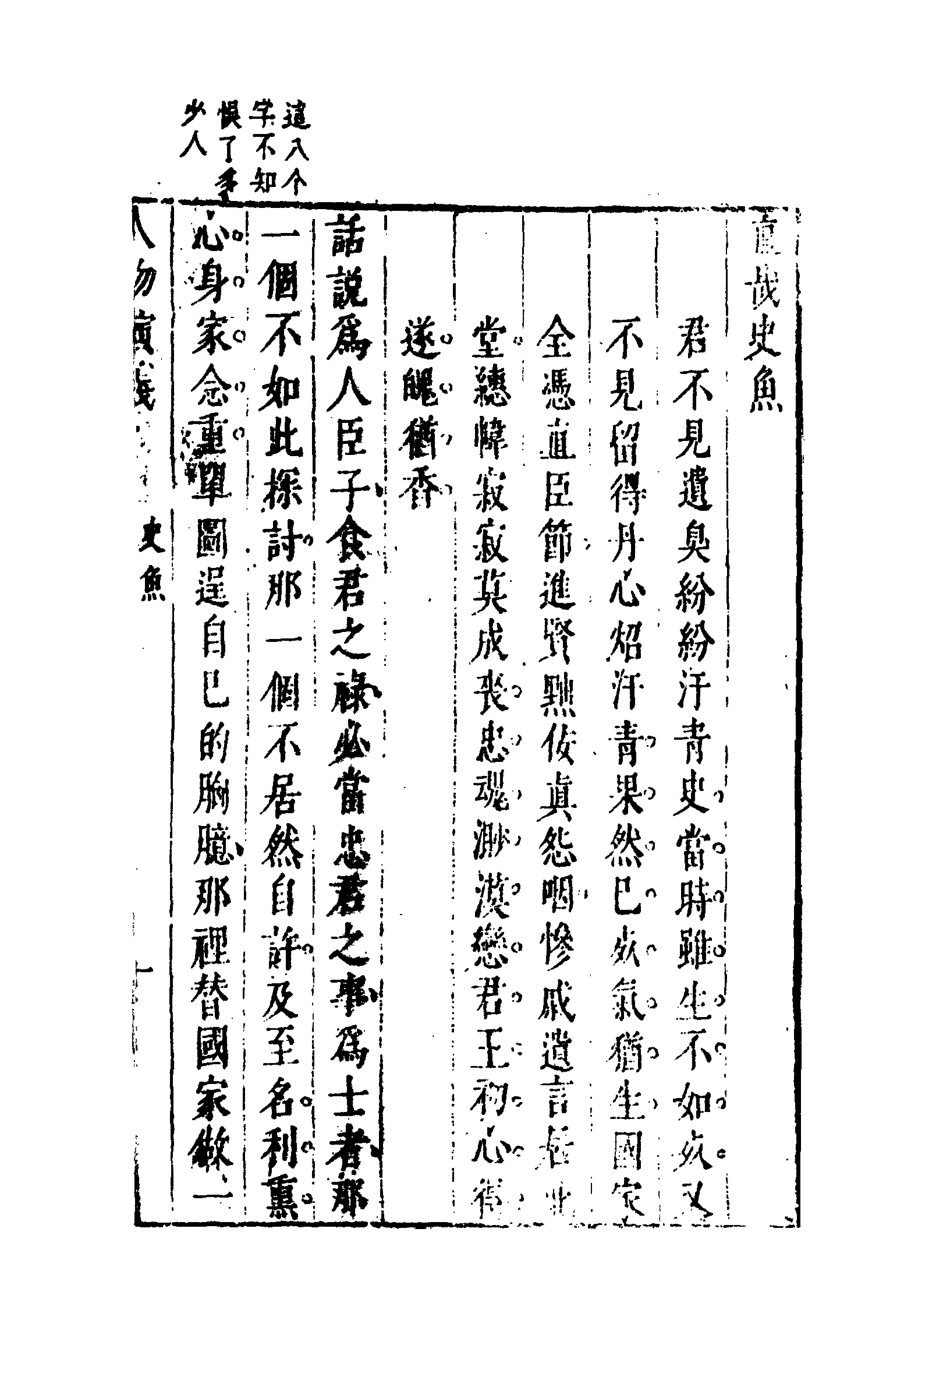 這八个
字不知
悞了多
少人
直哉史魚
君不見遺臭紛紛汗青史當時雖生不如死又
不見留得丹心炤汗青果然已死氣猶生國家
全憑直臣節進賢黜佞眞怨咽慘戚遺言在北
堂繐幃寂寂莫成喪忠魂渺漠戀君王初心得
遂魄猶香
話説爲人臣子食君之祿必當忠君之事爲士者那
一個不如此探討那一個不居然自許及至名利熏
心身家念重單圖逞自己的胸臆那裡替國家做一
人物演義 史魚 一